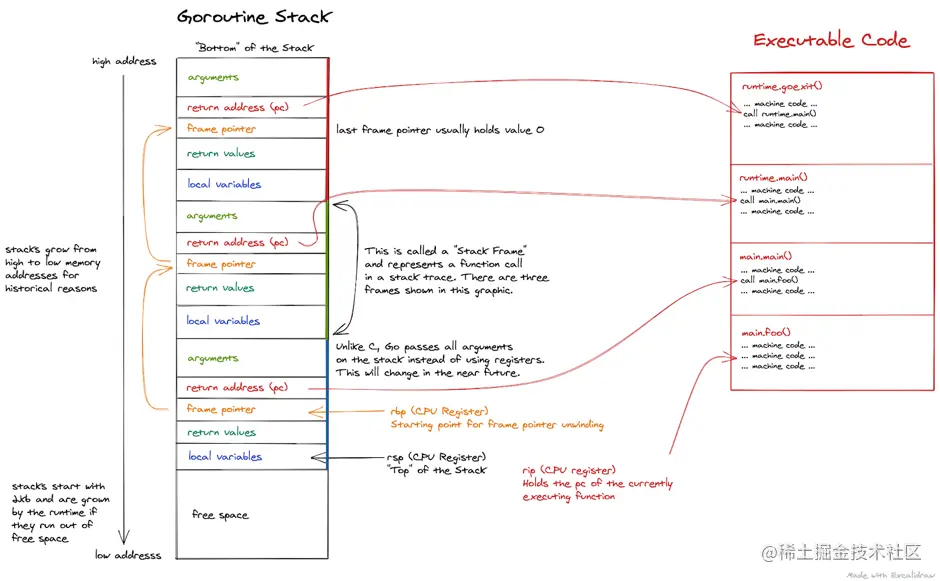 Goroutine Stack
"Bottom" of the Stack
high address
arguments
return address (pc)
frame pointer
last frame pointer usually holds value 0
return values
local variables
arguments
return address (pc)
frame pointer
return values
local variables
arguments
return address (pc)
frame pointer
return values
local variables
free space
stack's grow from
high to low memory
addresses for
historical reasons
This is called a "Stack Frame"
and represents a function call
in a stack trace. There are three
frames shown in this graphic.
Unlike C, Go passes all arguments
on the stack instead of using registers.
This will change in the near future.
rbp (CPU Register)
Starting point for frame pointer unwinding
rsp (CPU Register)
"Top" of the Stack
stack's start with
2kb and are grown
by the runtime if
they run out of
free space
low addresss
Executable Code
runtime.goexit()
... machine code ...
call runtime.main()
... machine code ...
runtime.main()
... machine code ...
call main.main()
... machine code ...
main.main()
... machine code ...
call main.foo()
... machine code ...
main.foo()
... machine code ...
... machine code ...
... machine code ...
rip (CPU register)
Holds the pc of the currently
executing function
@稀土掘金技术社区
Made with Excalidraw